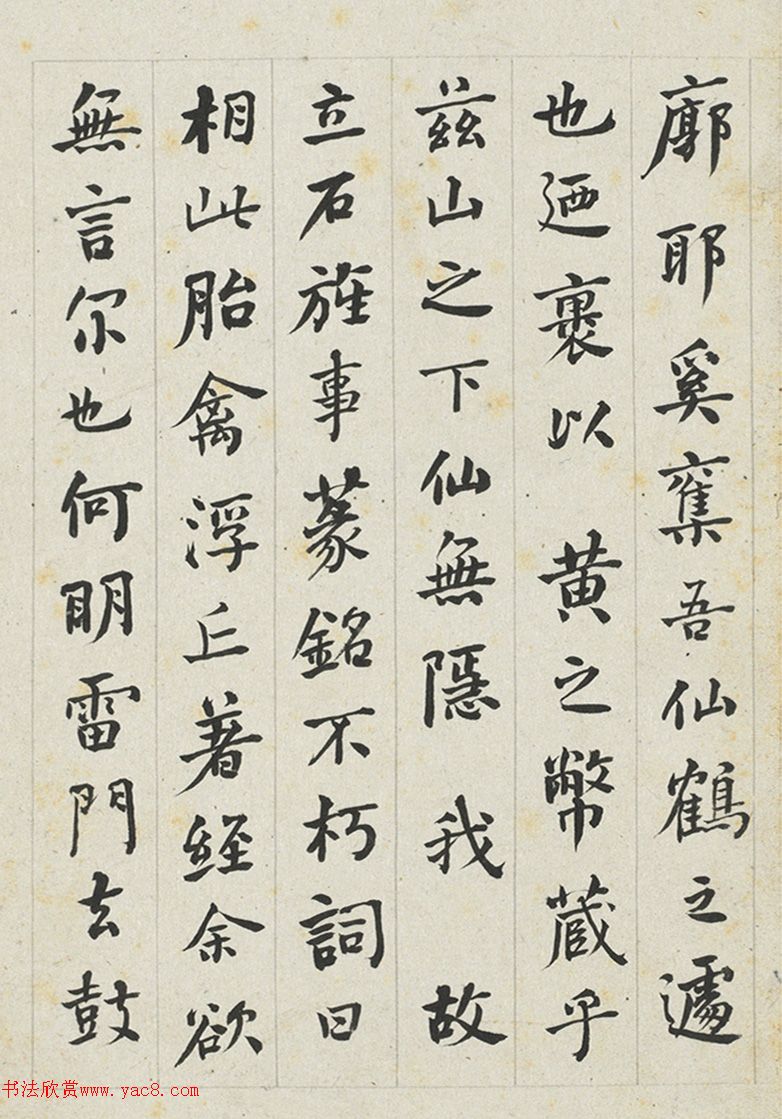 廓耶奚奪吾仙鶴之遽
也廼裹以 黄之幣蔵乎
兹山之下仙無隱 我 故
立石旌事篆銘不朽詞曰
相此胎禽浮丘著經余欲
無言尔也何明雷門去鼓
书法欣赏www.yac8.com